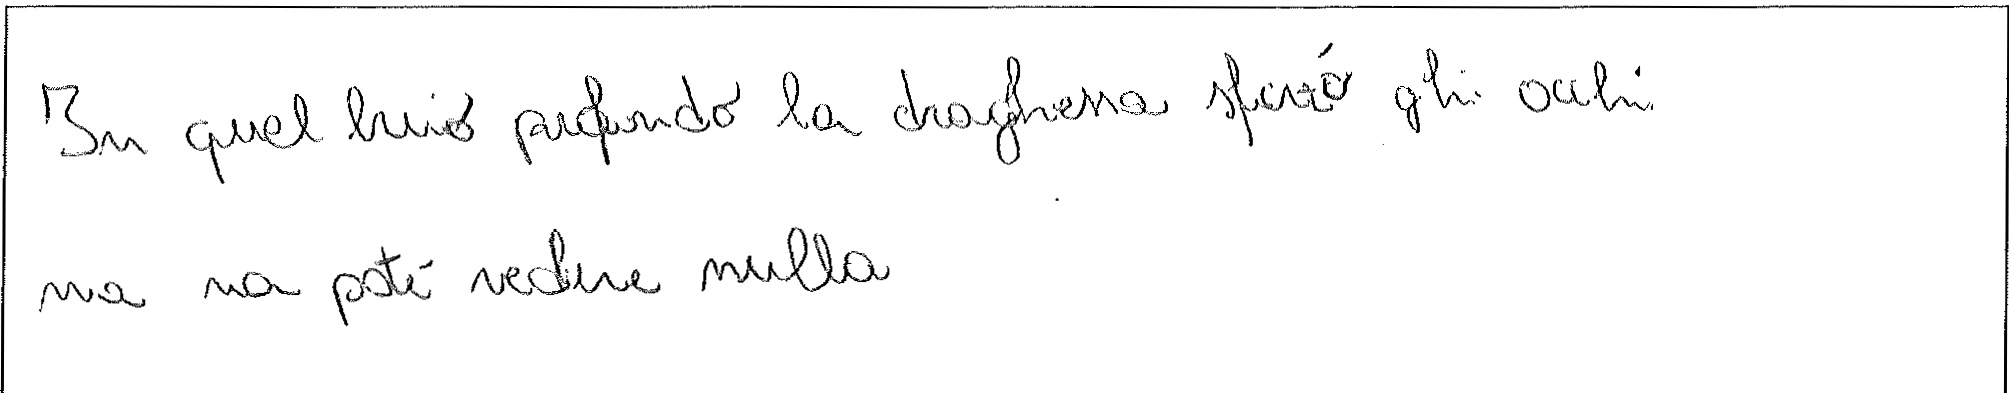 In quel buio profondo la draghessa sforzò ghi occhi
ma na poté vedere nulla